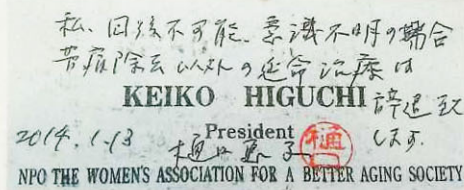 私、回復不可能、意識不明の場合
苦痛除去以外の延命治療は
KEIKO HIGUCHI 辞退致
2014.1.13 President します.
樋口恵子 樋口
NPO THE WOMEN'S ASSOCIATION FOR A BETTER AGING SOCIETY